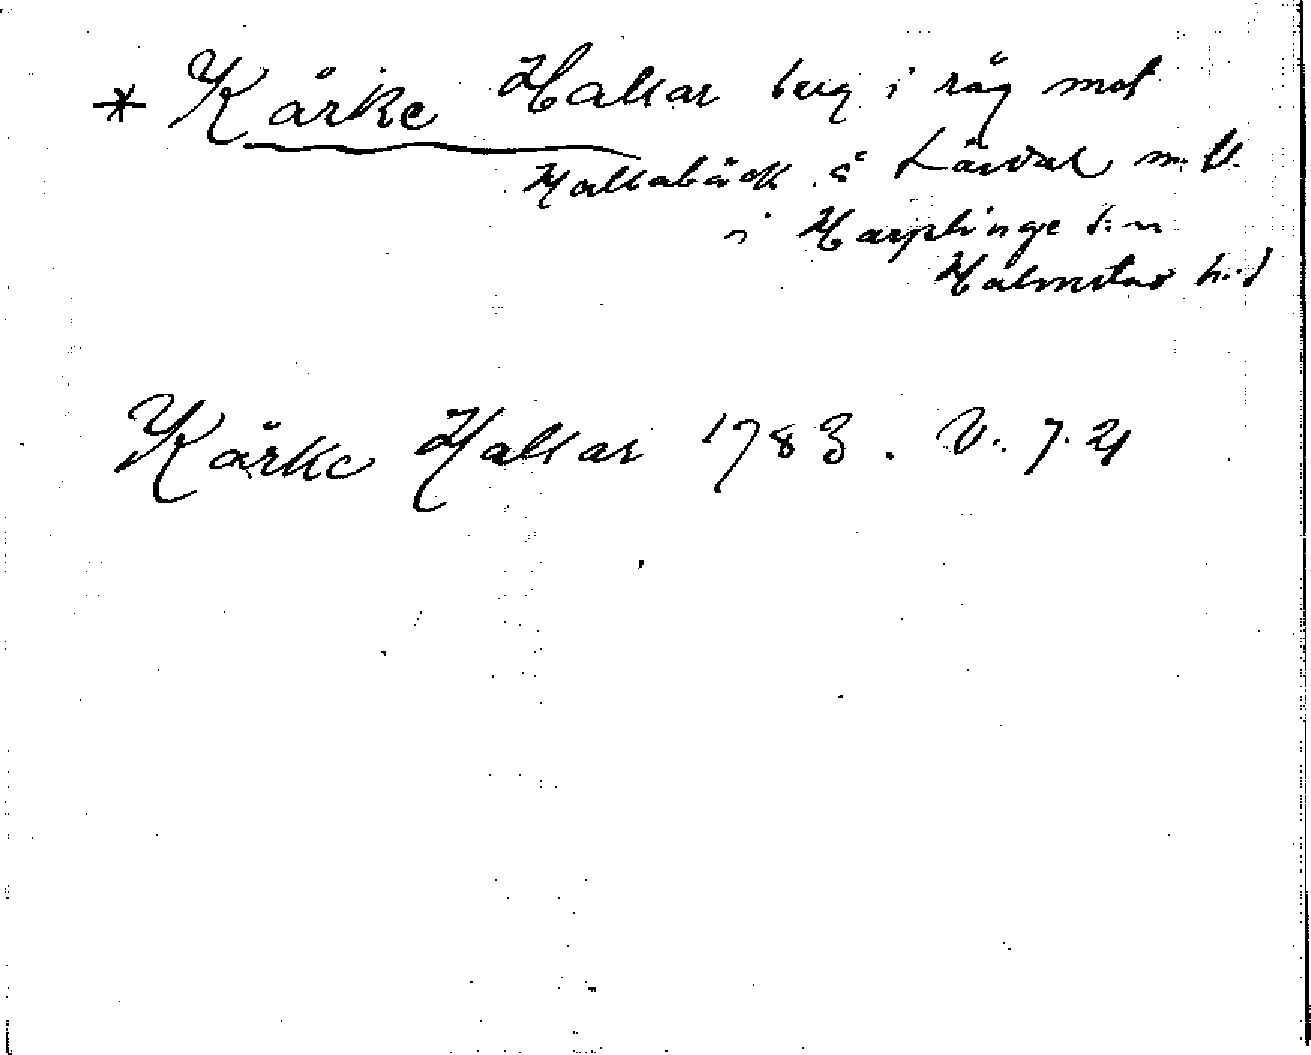 * Kårke Hallar berg i råg mot
Hallabäck å Lårdal m. fl.
i Harplinge s:n
Halmstad h:d
Kårke Hallar 1783. V. 7. 21